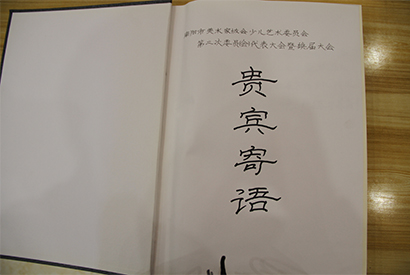 阳市美术家协会少儿艺术委员会
第二次委员会代表大会暨换届大会
贵
宾
寄
语